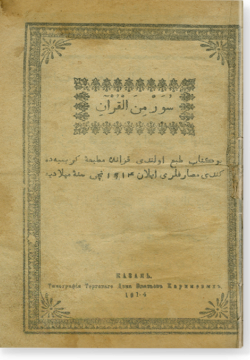 سور من القرآن
بو كتاب طبع اولندى قزانك مطبعهٔ كريميه‌ده
كندى مصارفلرى ايلان ١٩١٤ نچى سنهٔ ميلاديه
КАЗАНЬ.
Типографія Торговаго Дома Братьевъ Каримовыхъ
1914